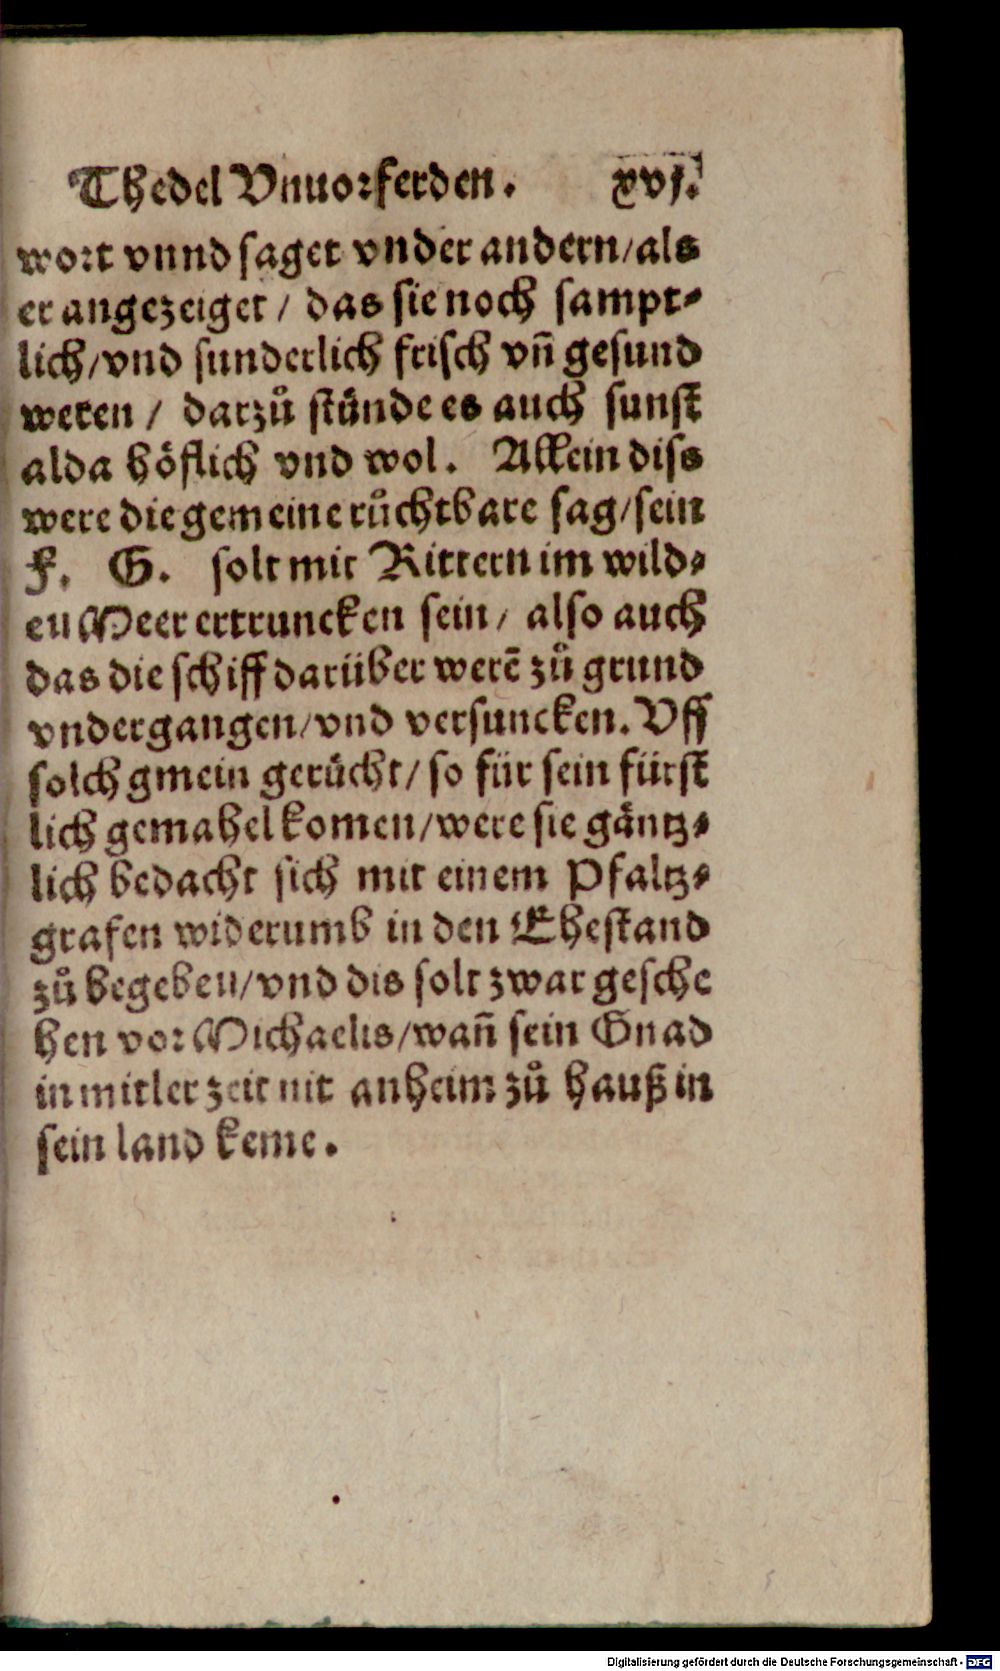 Thedel Vnuorferden. xvj.
wort vnnd saget vnder andern/als
er angezeiget / das sie noch sampt⸗
lich/vnd sunderlich frisch vn̄ gesund
weren / darzů stünde es auch sunst
alda höflich vnd wol. Allein diss
were die gemeine růchtbare sag/sein
F. G. solt mit Rittern im wild⸗
en Meer ertruncken sein/ also auch
das die schiff darüber werē zů grund
vndergangen/vnd versuncken. Vff
solch gmein gerücht/so für sein fürst
lich gemahel komen/were sie gäntz⸗
lich bedacht sich mit einem Pfaltz⸗
grafen widerumb in den Ehestand
zů begeben/vnd dis solt zwar gesche
hen vor Michaelis/wan̄ sein Gnad
in mitler zeit nit anheim zů hauß in
sein land keme.
Digitalisierung gefördert durch die Deutsche Forschungsgemeinschaft - DFG